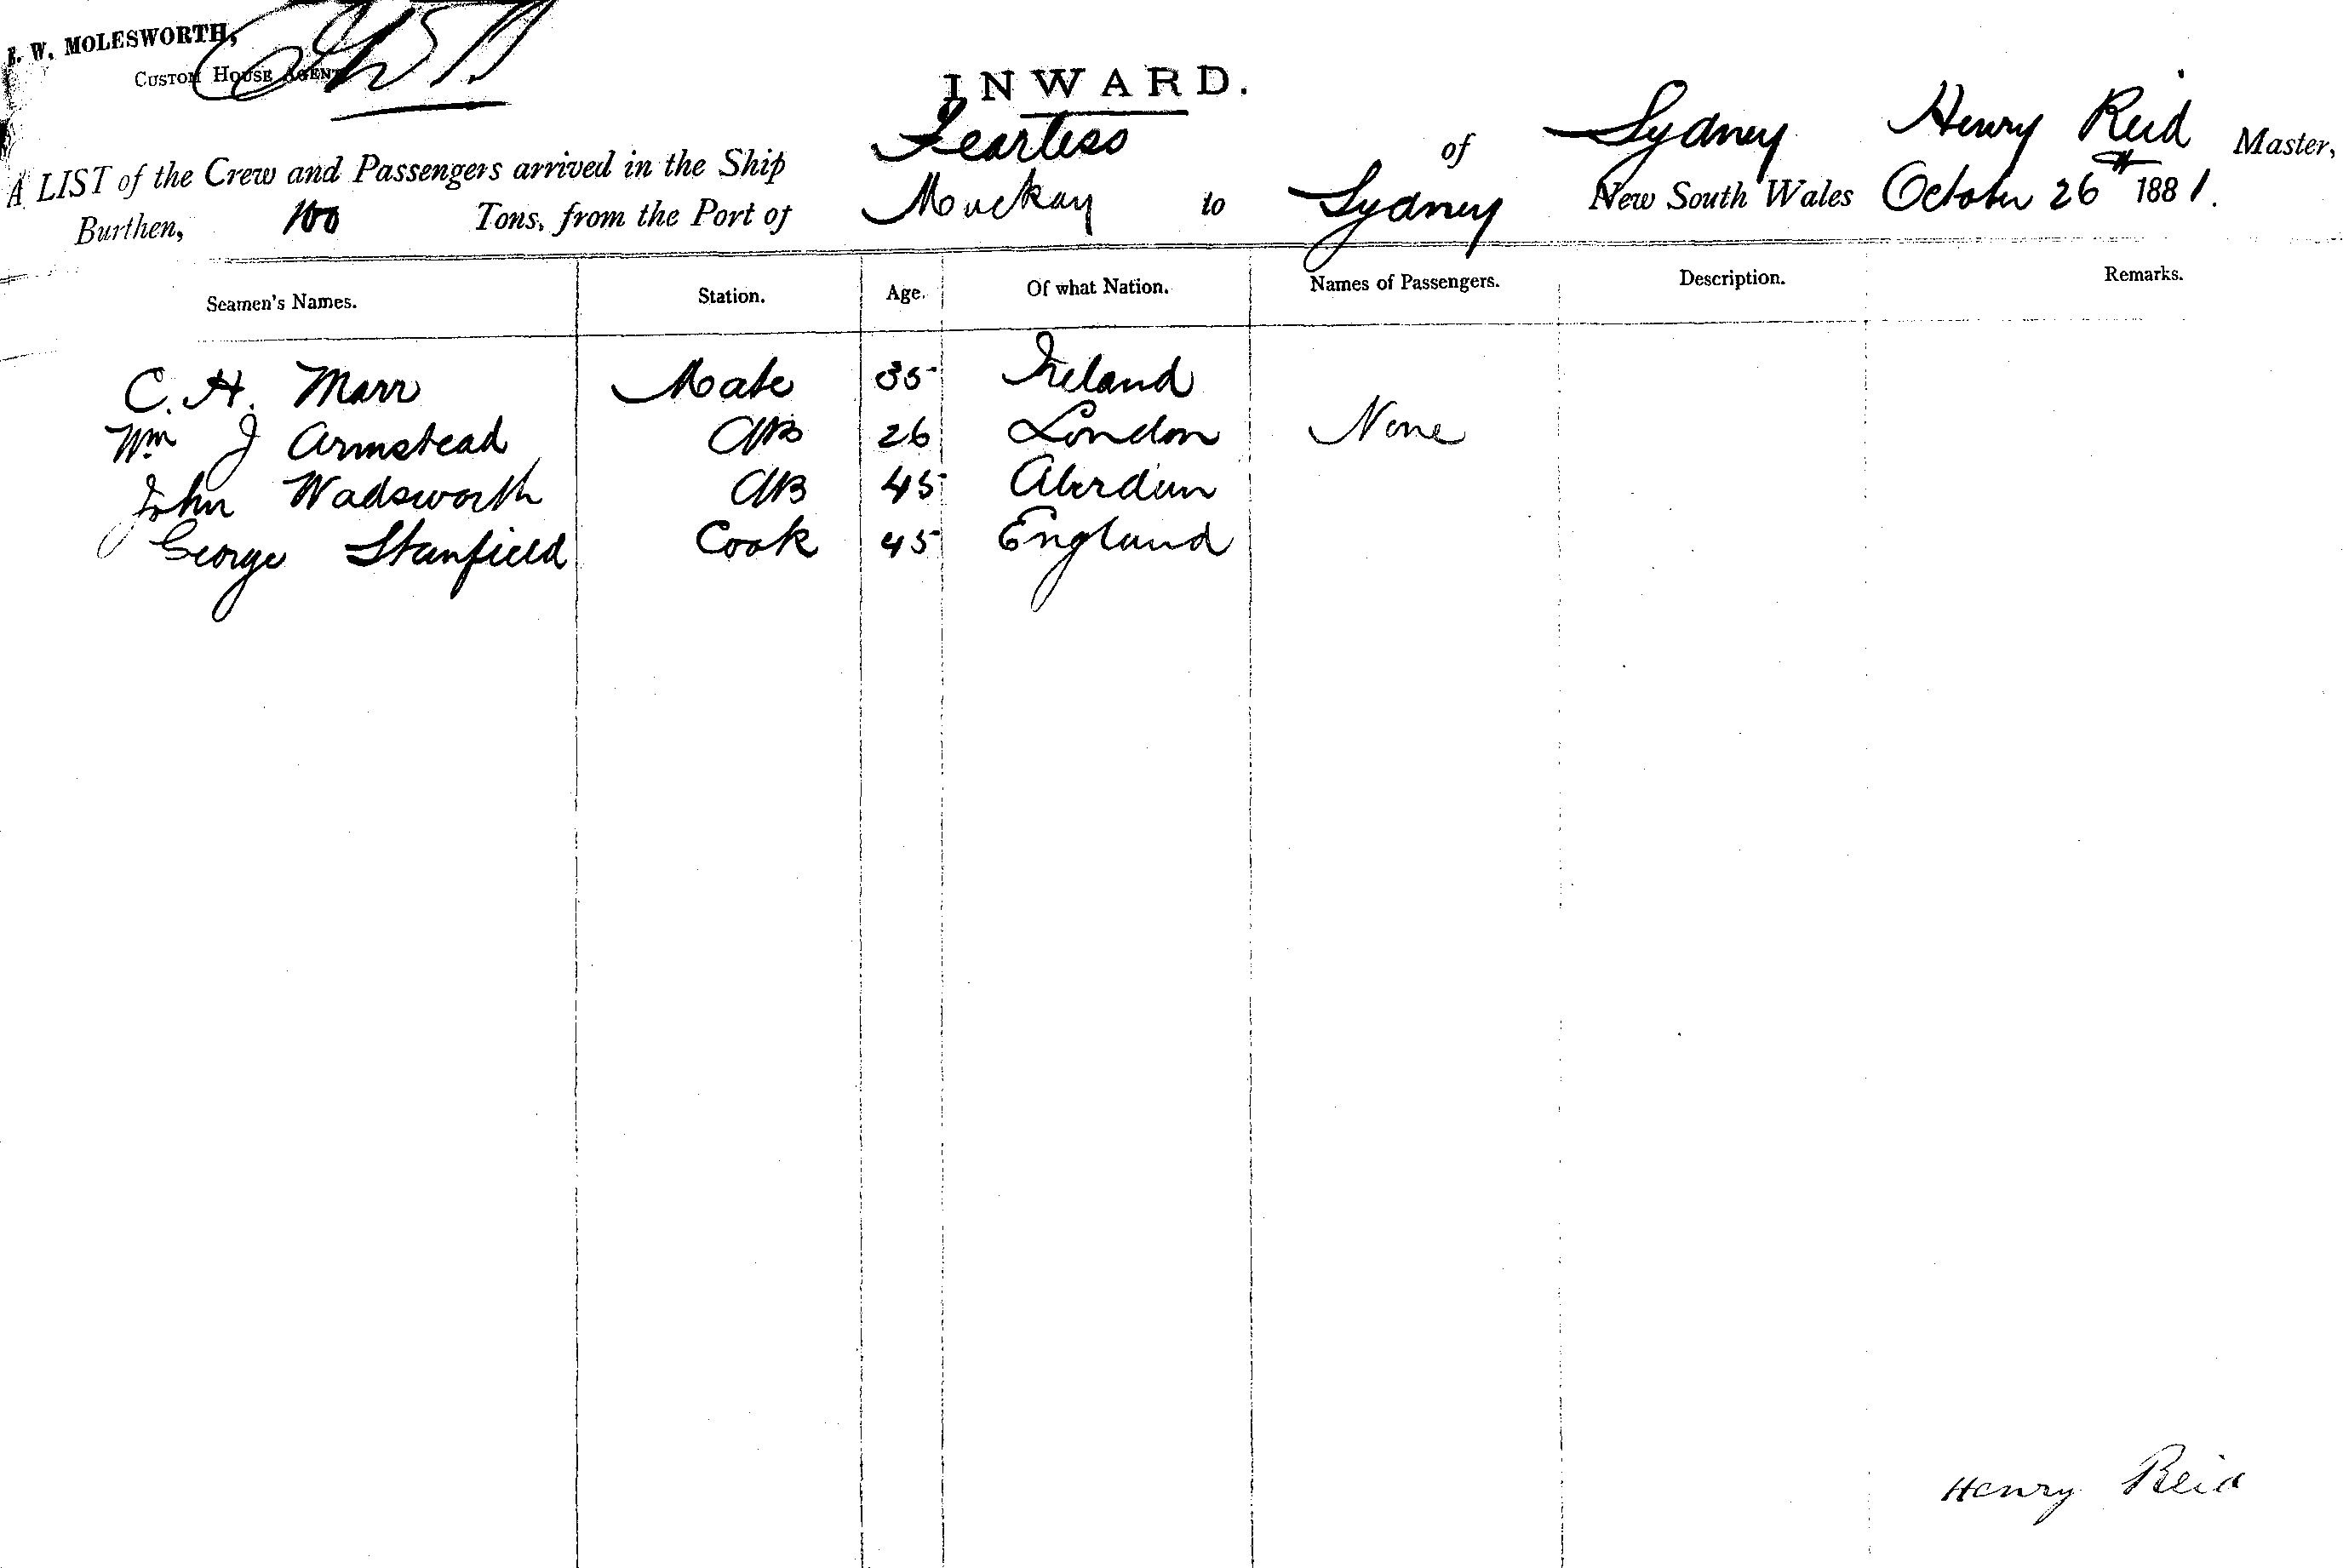 E. W. MOLESWORTH,
CUSTOM HOUSE AGENT
INWARD.
A LIST of the Crew and Passengers arrived in the Ship Fearless of Sydney Henry Reid Master,
Burthen, 100 Tons, from the Port of Mackay to Sydney New South Wales October 26th 1881.
Seamen's Names. Station. Age. Of what Nation. Names of Passengers. Description. Remarks.
C. H. Marr Mate 35 Ireland
Wm J Armstead AB 26 London None
John Wadsworth AB 45 Aberdeen
George Stanfield Cook 45 England
Henry Reid